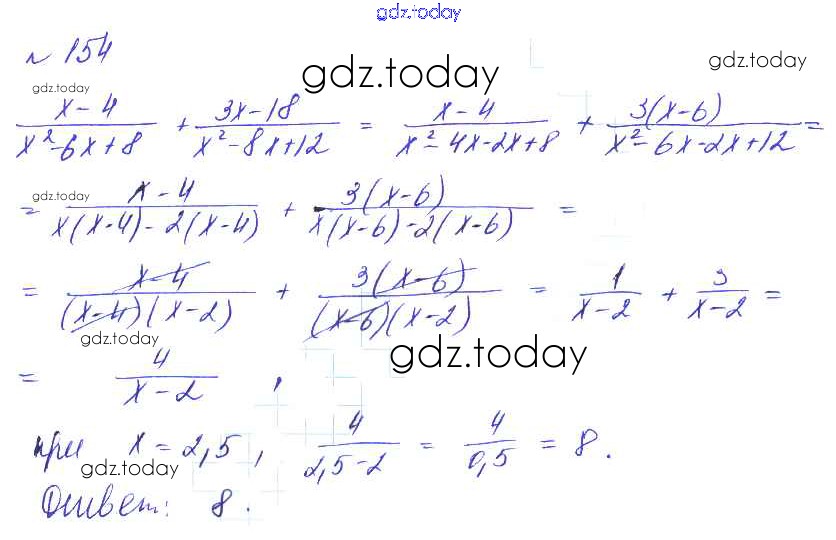 gdz.today
№ 154
gdz.today
gdz.today
gdz.today
(x-4)/(x²-6x+8) + (3x-18)/(x²-8x+12) = (x-4)/(x²-4x-2x+8) + 3(x-6)/(x²-6x-2x+12) =
gdz.today
= (x-4)/(x(x-4)-2(x-4)) + 3(x-6)/(x(x-6)-2(x-6)) =
= (x-4)/((x-4)(x-2)) + 3(x-6)/((x-6)(x-2)) = 1/(x-2) + 3/(x-2) =
gdz.today
gdz.today
= 4/(x-2) ,
при x = 2,5 , 4/(2,5-2) = 4/0,5 = 8 .
gdz.today
Ответ: 8 .